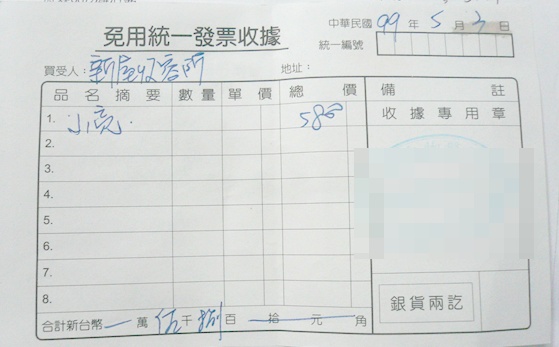 免用統一發票收據
中華民國 99 年 5 月 3 日
統一編號
買受人：新屋收容所 地址：
品名摘要 數量 單價 總價 備註
1. 小亮. 5800 收據專用章
2.
3.
4.
5.
6.
7.
8.
銀貨兩訖
合計新台幣 一 萬 伍 千 捌 百 拾 元 角